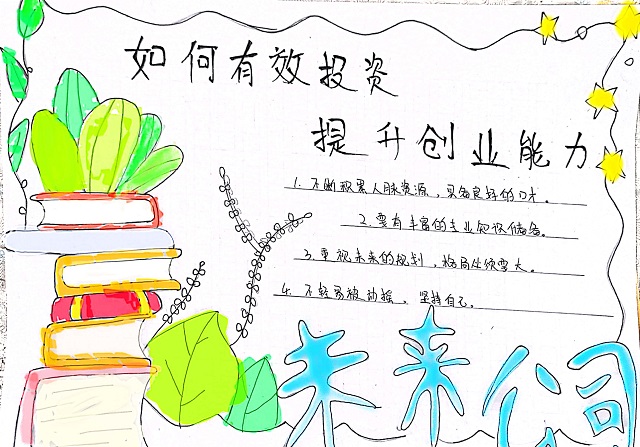 如何有效投资
提升创业能力
1. 不断积累人脉资源，具备良好的口才。
2. 要有丰富的专业知识储备。
3. 重视未来的规划，格局必须要大。
4. 不轻易被动摇，坚持自己。
未来公司